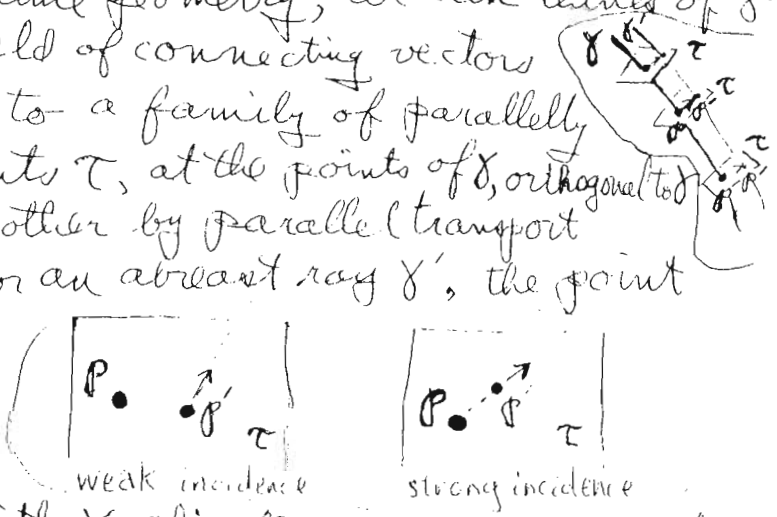 geometry,
ld of connecting vectors
to a family of parallelly
nts τ, at the points of γ, orthogonal to γ
other by parallel transport
or an abreast ray γ', the point
γ γ' τ
τ
τ
P P' τ
P P' τ
weak incidence
strong incidence